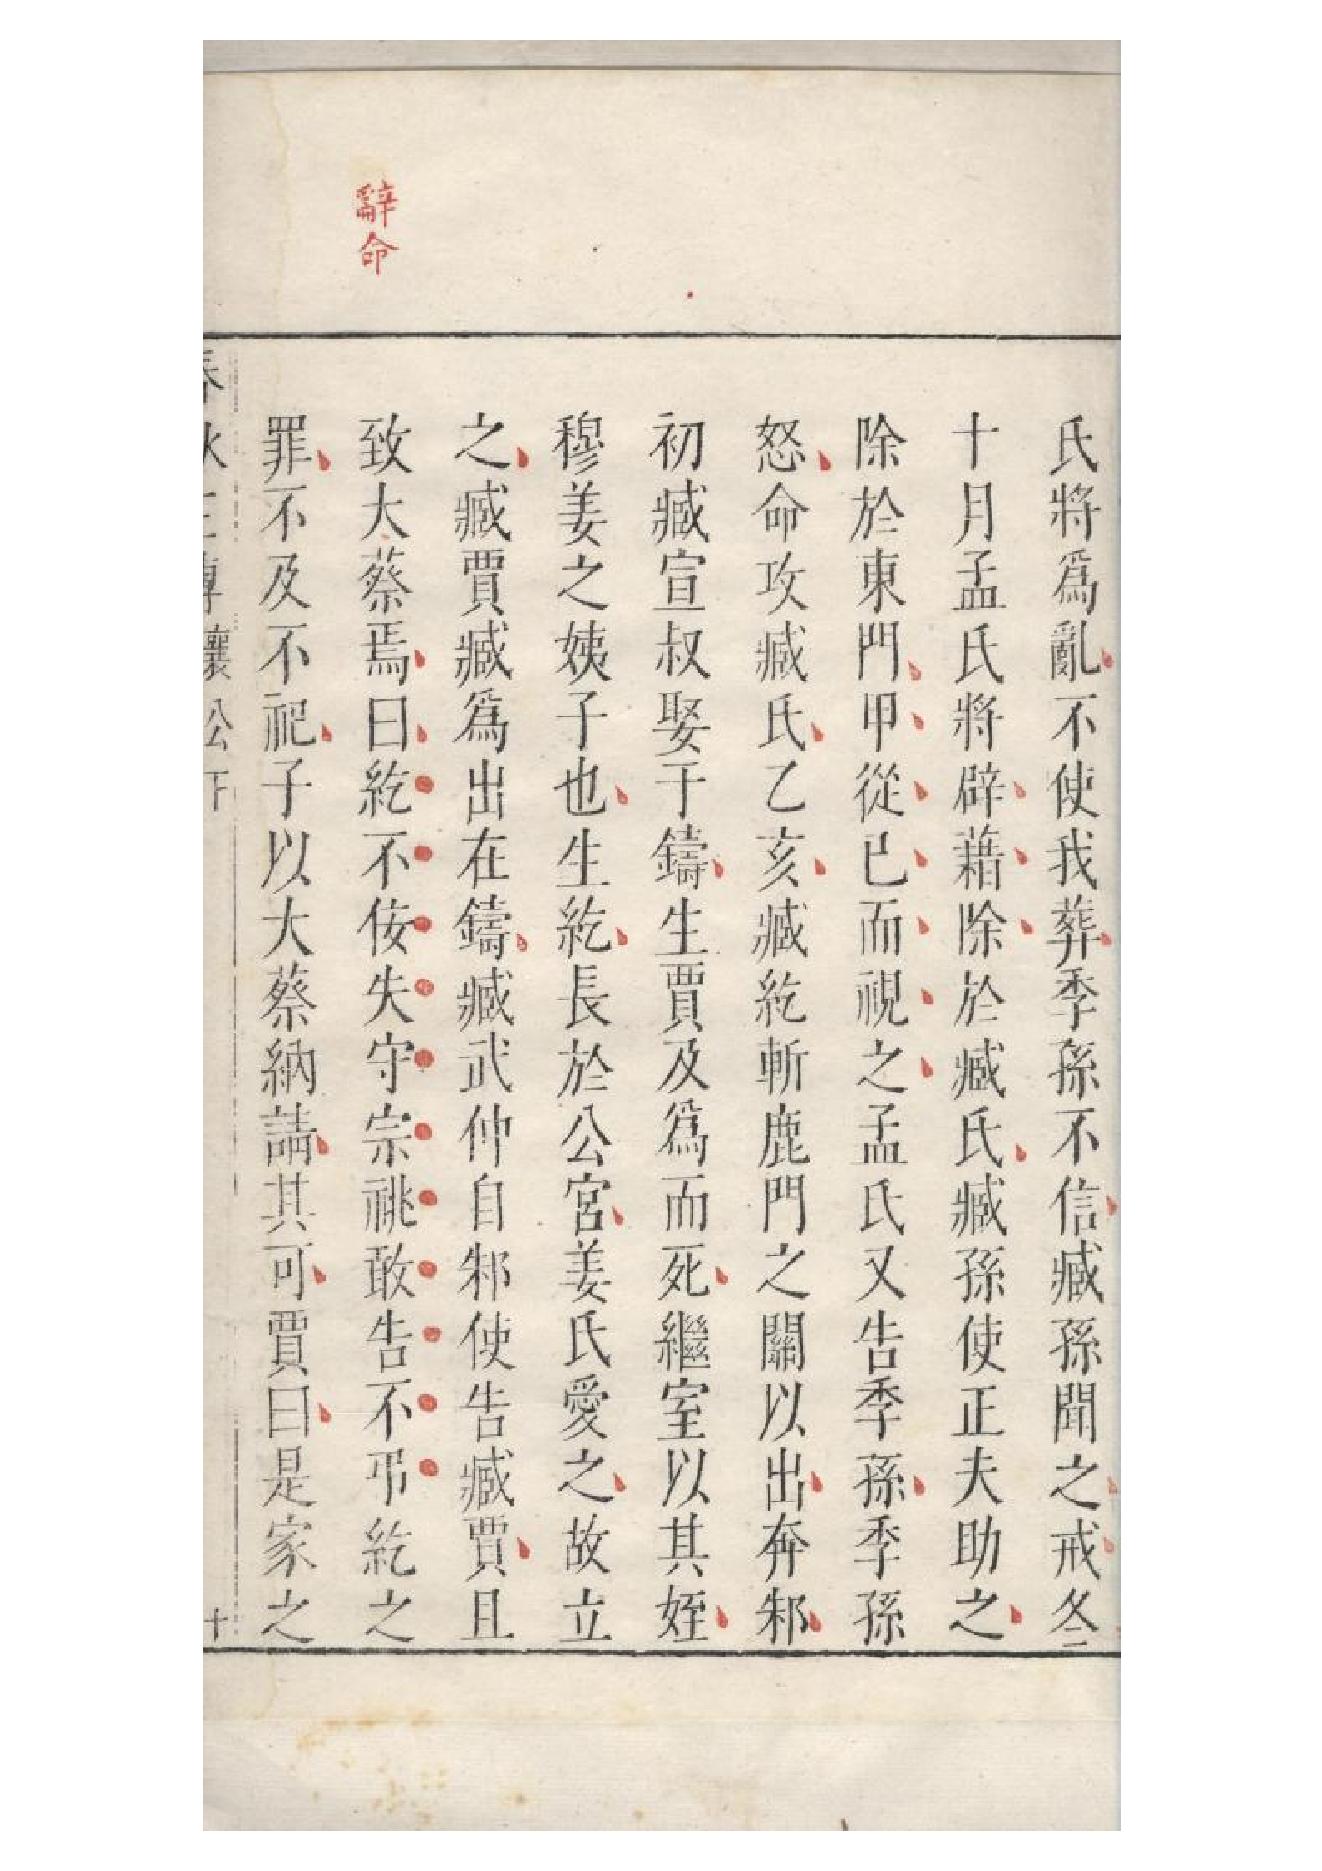 辭命
氏將爲亂不使我葬季孫不信臧孫聞之戒冬
十月孟氏將辟藉除於臧氏臧孫使正夫助之
除於東門甲從已而視之孟氏又告季孫季孫
怒命攻臧氏乙亥臧紇斬鹿門之關以出奔邾
初臧宣叔娶于鑄生賈及爲而死繼室以其姪
穆姜之姨子也生紇長於公宮姜氏愛之故立
之臧賈臧爲出在鑄臧武仲自邾使告臧賈且
致大蔡焉曰紇不佞失守宗祧敢告不弔紇之
罪不及不祀子以大蔡納請其可賈曰是家之
春秋左傳 襄公下 十